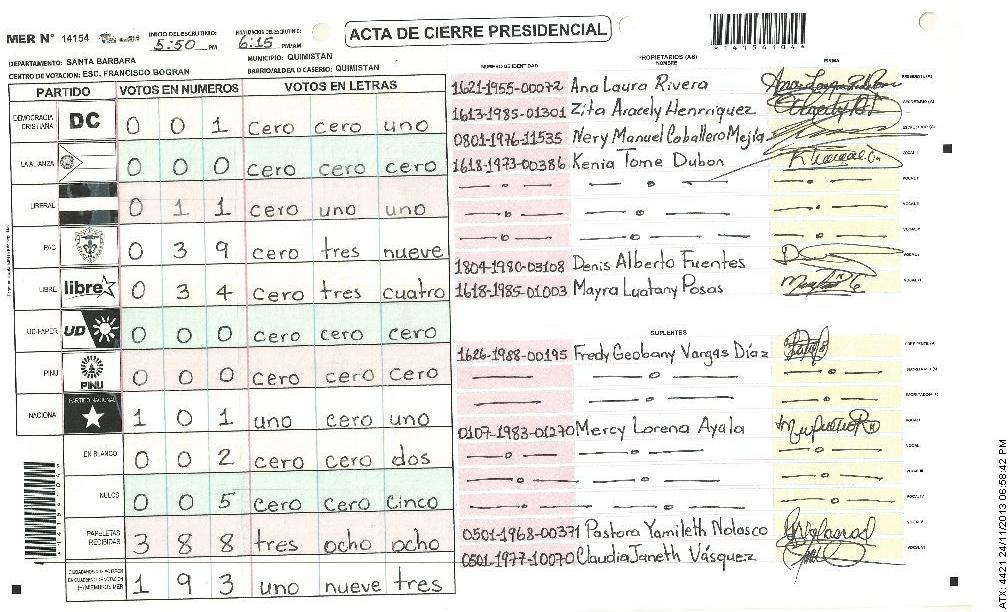 MER N° 14154
INICIO DEL ESCRUTINIO: 5:50 PM
6:15 PM/AM
ACTA DE CIERRE PRESIDENCIAL
141541044
DEPARTAMENTO: SANTA BARBARA
MUNICIPIO: QUIMISTAN
CENTRO DE VOTACION: ESC. FRANCISCO BOGRAN
BARRIO/ALDEA O CASERIO: QUIMISTAN
PARTIDO VOTOS EN NUMEROS VOTOS EN LETRAS
DEMOCRACIA CRISTIANA DC 0 0 1 cero cero uno
LA ALIANZA 0 0 0 cero cero cero
LIBERAL 0 1 1 cero uno uno
PAC 0 3 9 cero tres nueve
LIBRE libre 0 3 4 cero tres cuatro
UD-FAPER UD 0 0 0 cero cero cero
PINU PINU 0 0 0 cero cero cero
NACIONA PARTIDO NACIONAL 1 0 1 uno cero uno
EN BLANCO 0 0 2 cero cero dos
NULOS 0 0 5 cero cero cinco
PAPELETAS RECIBIDAS 3 8 8 tres ocho ocho
1 9 3 uno nueve tres
NUMERO DE IDENTIDAD PROPIETARIOS (AS) NOMBRE FIRMA
1621-1955-00072 Ana Laura Rivera
1613-1985-01301 Zita Aracely Henrriquez
0801-1976-11535 Nery Manuel Caballero Mejía
1618-1973-00386 Kenia Tome Dubon
1804-1980-03108 Denis Alberto Fuentes
1618-1985-01003 Mayra Luatany Posas
SUPLENTES
1626-1988-00195 Fredy Geobany Vargas Díaz
0107-1983-01270 Mercy Lorena Ayala
0501-1968-00371 Pastora Yamileth Nolasco
0501-1977-10070 Claudia Janeth Vásquez
ATX: 4421 24/11/2013 06:58:42 PM